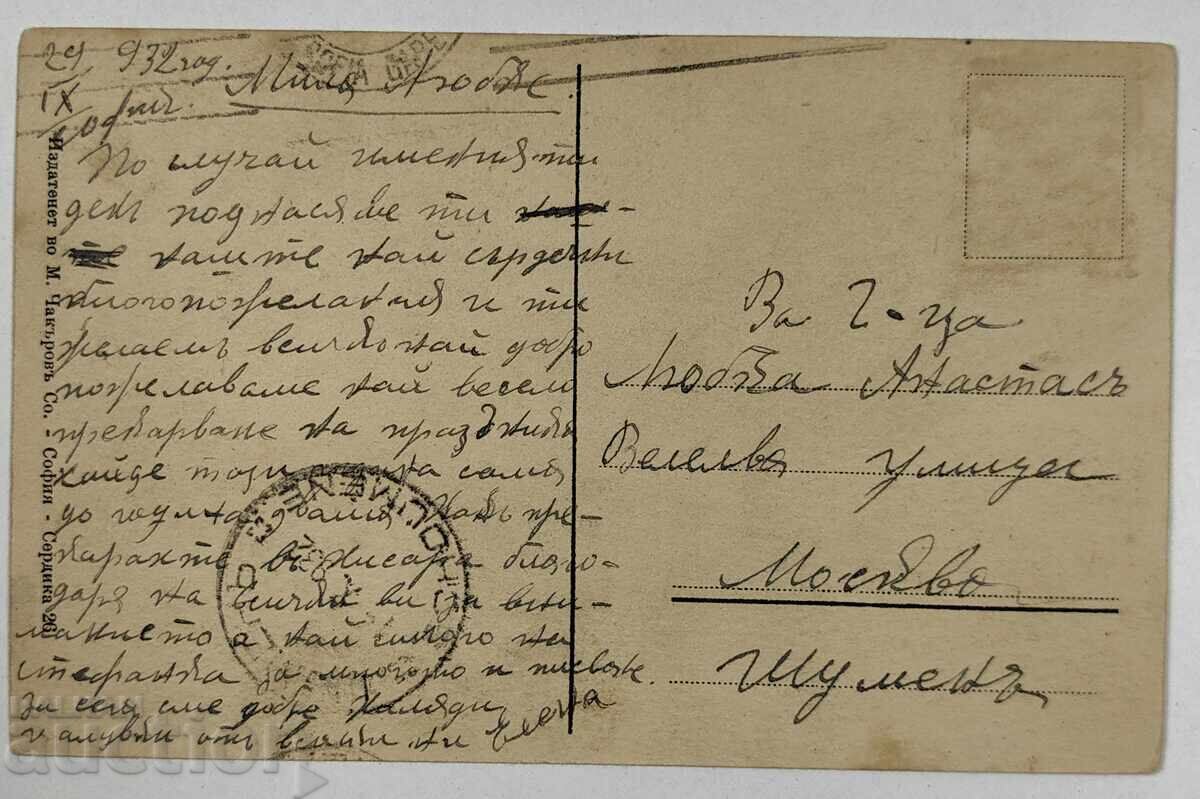 29 932 год.
IX
София.
Мила Любке.
По случай именния ти
ден поднасяме ти
нашите най сърдечни
благопожелания и ти
желаемъ всичко най добро
пожелаваме най весело
прекарване на праздника
хайде тази година сама
до година двама Какъ пре-
карахте въ Хисаря благо-
даря на всички ви за вни-
манието а най много на
Стефанка за многото и писване.
За сега сме добре Хиляди
целувки отъ всички ни Елена
Издателство М. Чакъровъ Со. - София - Сердика 26
За Г-ца
Любка Анастасъ
Велева улица
Москово
Шуменъ
ШУМЕН
auction